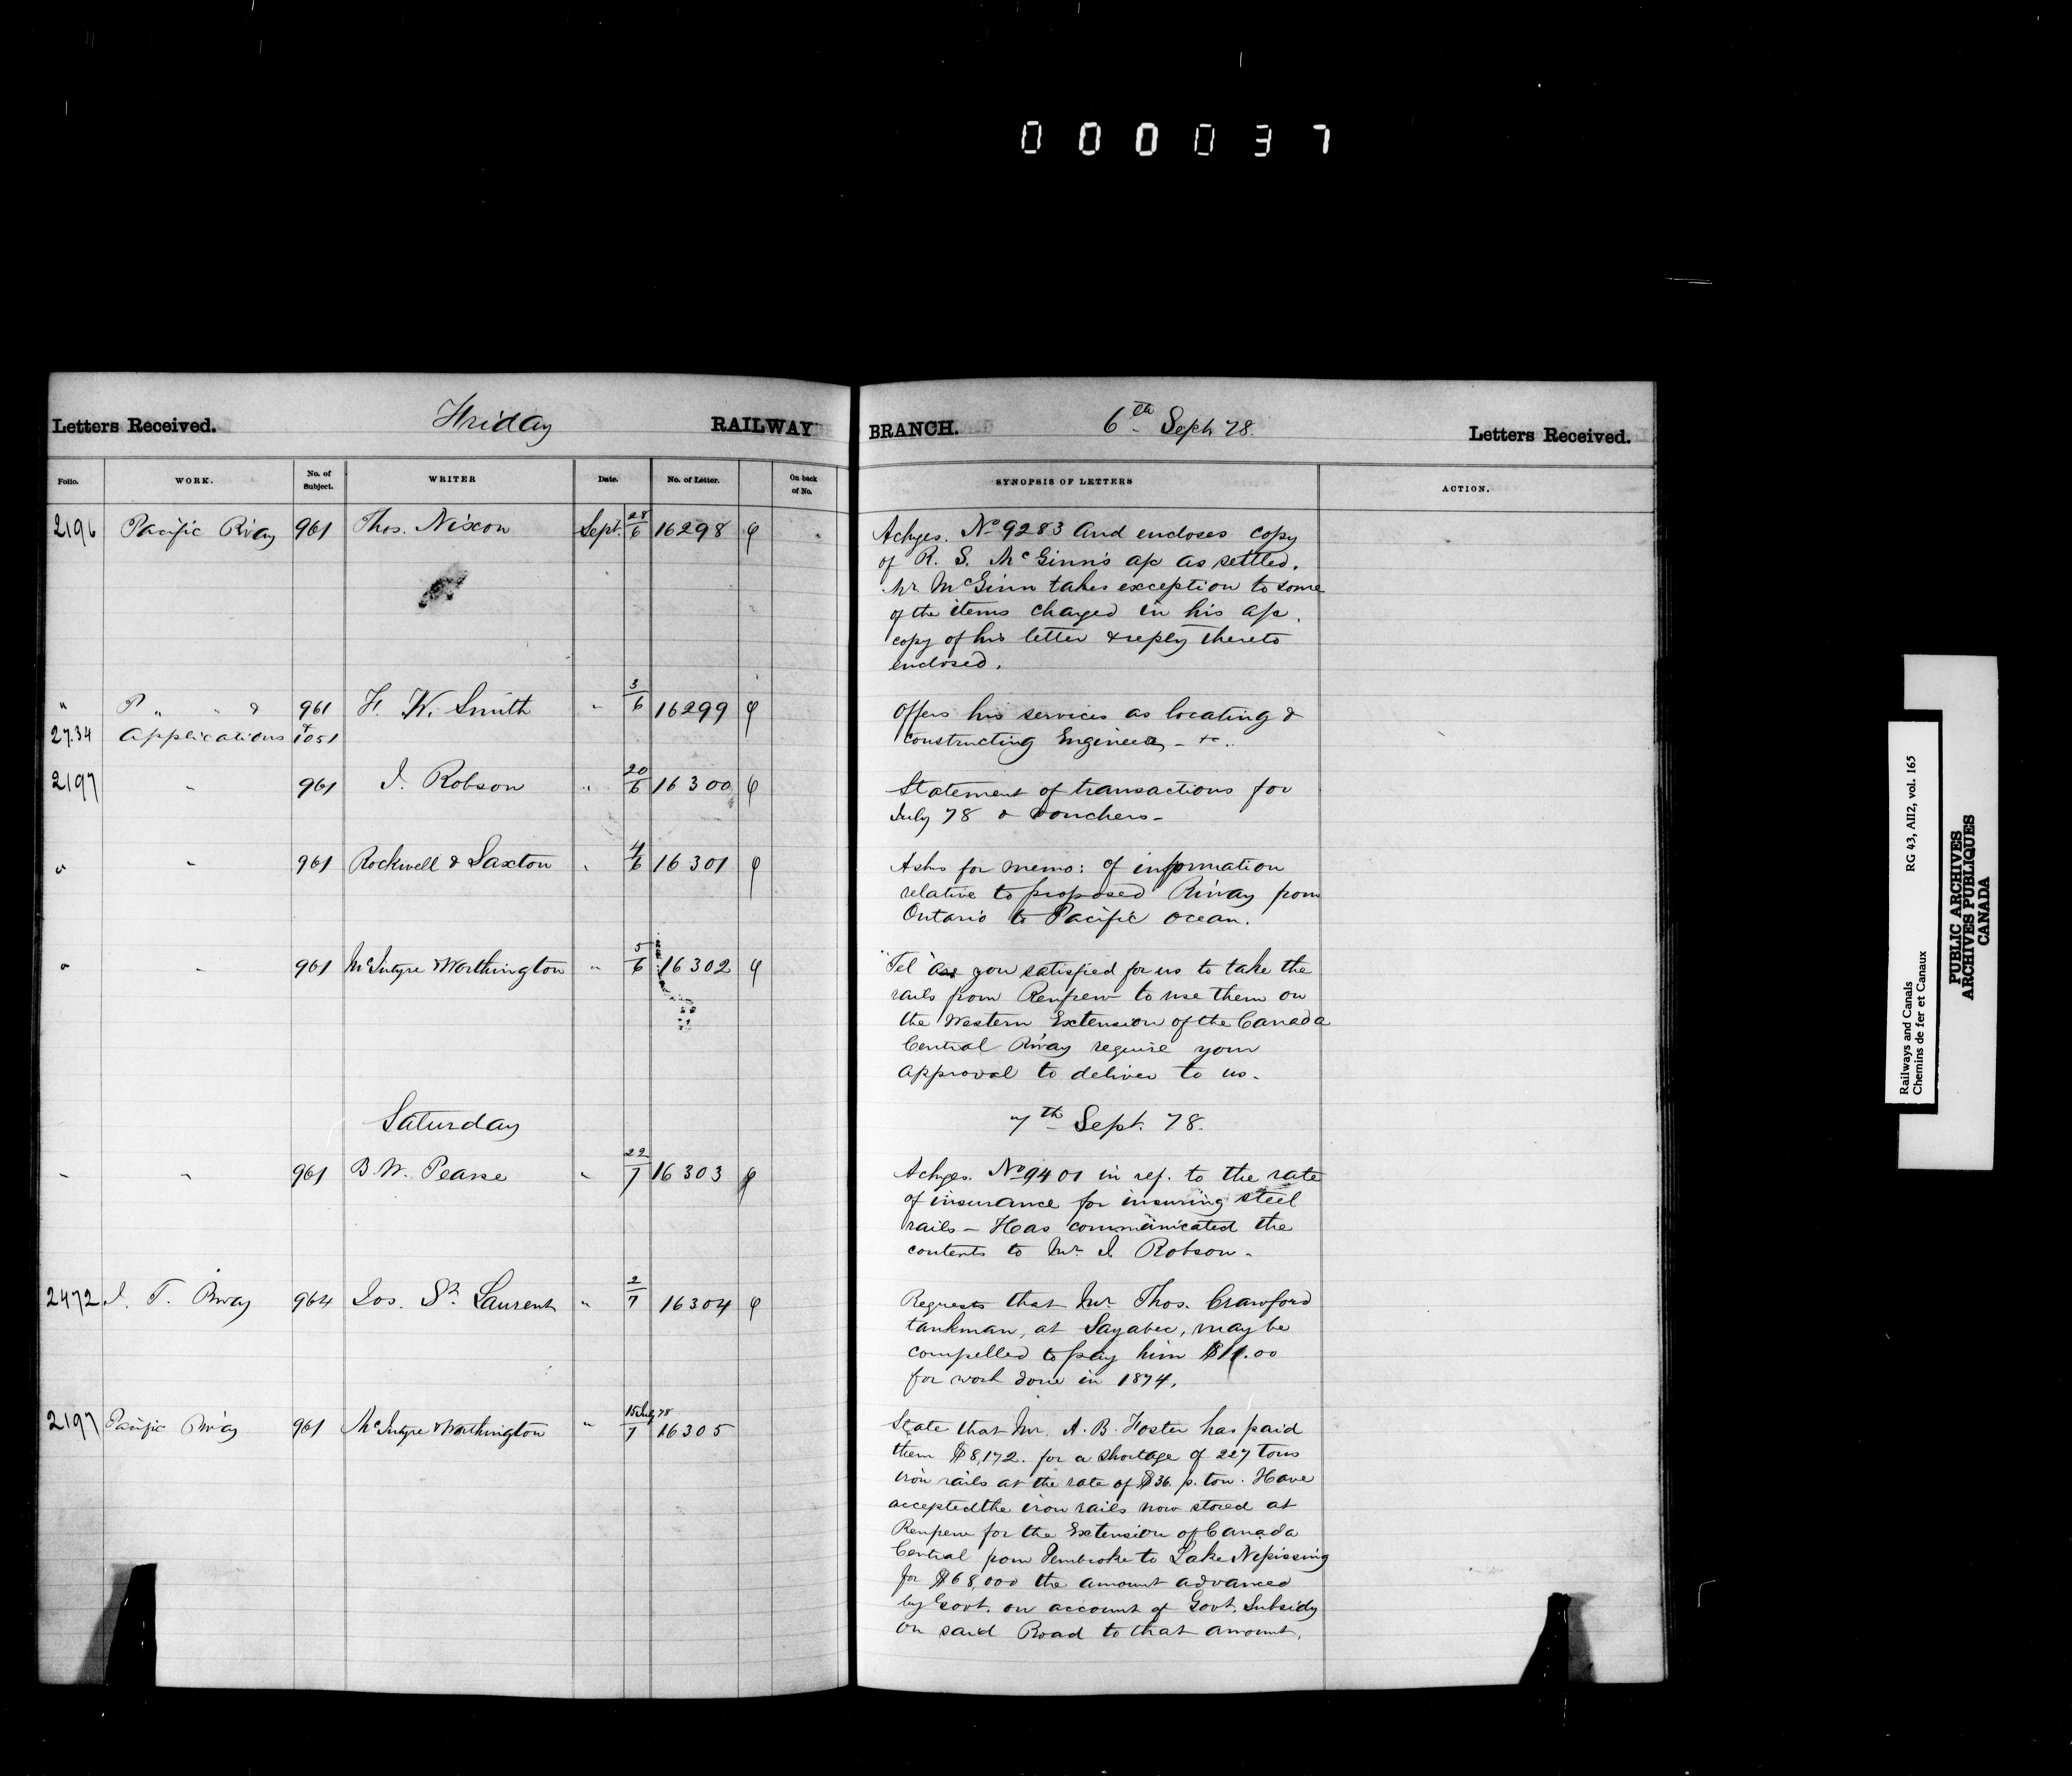 0 0 0 0 3 7
Letters Received. Friday RAILWAY BRANCH. 6th Sept 78. Letters Received.
Folio. WORK. No. of Subject. WRITER Date. No. of Letter. On back of No. SYNOPSIS OF LETTERS ACTION.
2196 Pacific R'way 961 Thos. Nixon Sept. 28/6 16298 φ Ackges. No 9283 and encloses copy
of R. S. McGinn's a/c as settled.
Mr McGinn takes exception to some
of the items charged in his a/c.
copy of his letter & reply thereto
enclosed.
" P " " & 961 F. W. Smith " 3/6 16299 φ Offers his services as locating &
27.34 Applications & 1051 constructing Engineer - &c..
2197 " 961 J. Robson " 20/6 16300 φ Statement of transactions for
July 78 & vouchers -
" " 961 Rockwell & Saxton " 4/6 16301 φ Asks for memo: of information
relative to proposed R'way from
Ontario to Pacific Ocean.
" " 961 McIntyre & Worthington " 5/6 16302 φ "Tel" Are you satisfied for us to take the
rails from Renfrew to use them on
the Western Extension of the Canada
Central R'way require your
approval to deliver to us.
Saturday 7th Sept. 78.
" " 961 B. W. Pearse " 22/7 16303 φ Ackges. No 9401 in ref. to the rate
of insurance for insuring steel
rails - Has communicated the
contents to Mr J Robson -
2472 I. T. Rway 964 Jos. St. Laurent " 2/7 16304 φ Requests that Mr. Thos. Crawford
tankman, at Sayabec, may be
compelled to pay him $11.00
for work done in 1874.
2197 Pacific R'way 961 McIntyre & Worthington " 15 July 78/7 16305 State that Mr. A. B. Foster has paid
them $8,172. for a shortage of 227 tons
iron rails at the rate of $36. p. ton. Have
accepted the iron rails now stored at
Renfrew for the Extension of Canada
Central from Pembroke to Lake Nepissing
for $68,000 the amount advanced
by Govt. on account of Govt. Subsidy
on said Road to that amount.
Railways and Canals RG 43, AII2, vol. 165
Chemins de fer et Canaux
PUBLIC ARCHIVES
ARCHIVES PUBLIQUES
CANADA